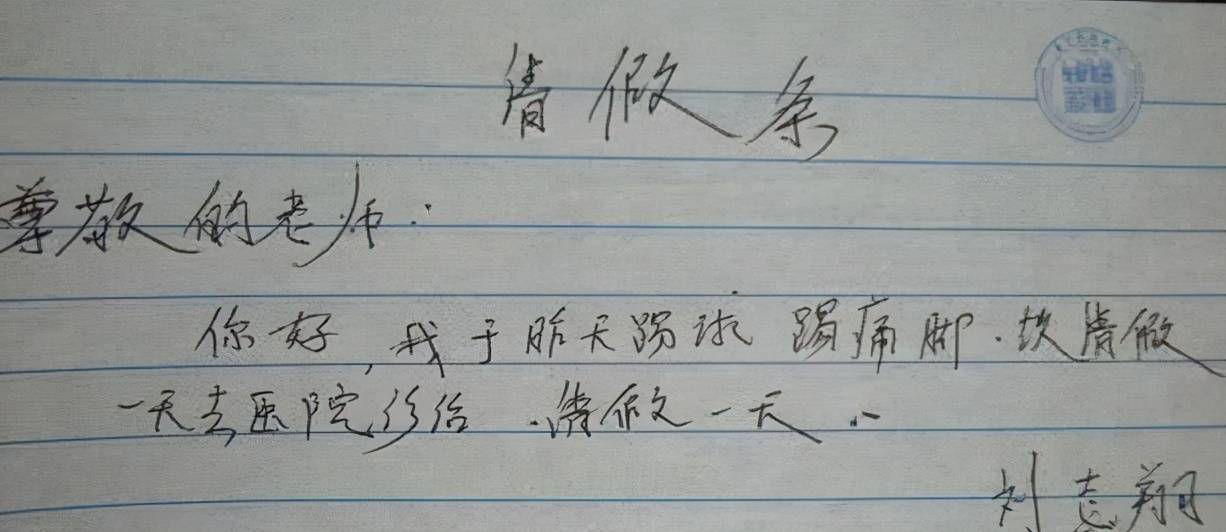 请假条
尊敬的老师:
你好,我于昨天踢球 踢痛脚.故请假
一天去医院诊治.请假一天.
刘志翔